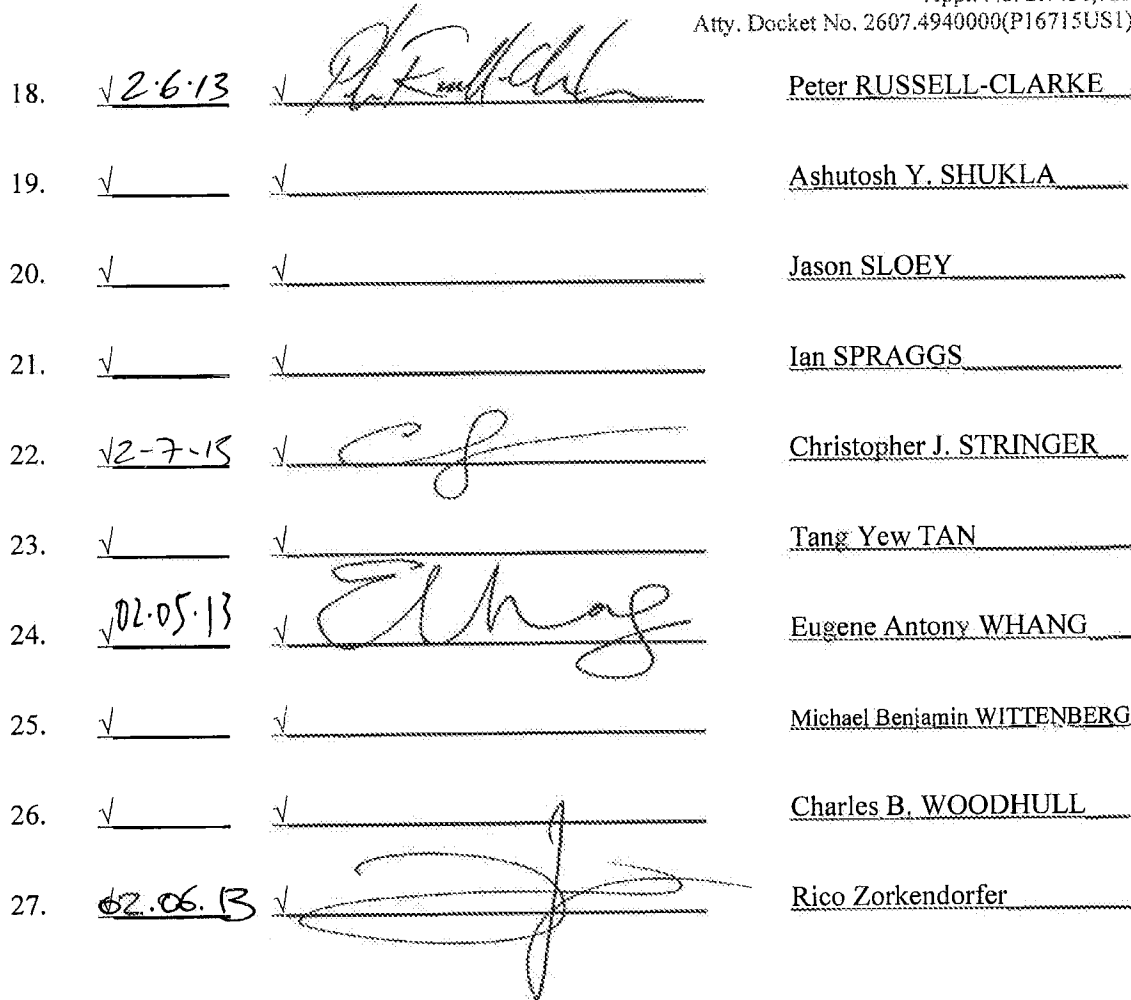 Atty. Docket No. 2607.4940000(P16715US1)
18. √ 2·6·13 √ Peter RUSSELL-CLARKE
19. √ √ Ashutosh Y. SHUKLA
20. √ √ Jason SLOEY
21. √ √ Ian SPRAGGS
22. √ 2-7-13 √ Christopher J. STRINGER
23. √ √ Tang Yew TAN
24. √ 02·05·13 √ Eugene Antony WHANG
25. √ √ Michael Benjamin WITTENBERG
26. √ √ Charles B. WOODHULL
27. √ 02.06.13 √ Rico Zorkendorfer